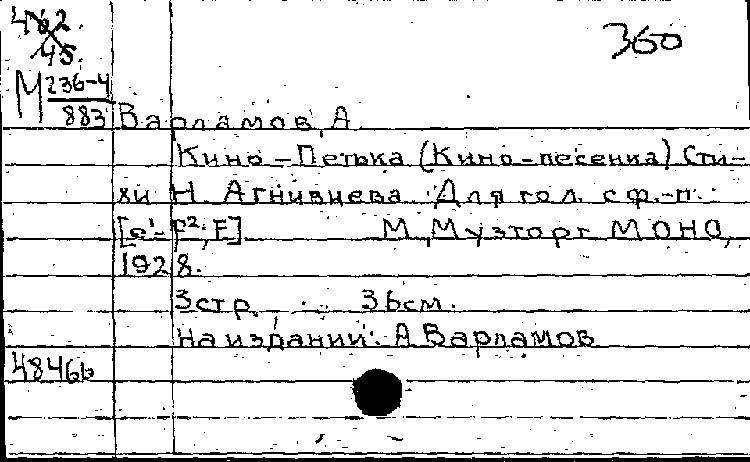 462.
45.
360
М 236-4
883
Варламов, А.
Кино-Петька (Кино-песенка) Сти-
хи Н. Агнивцева. Для гол. с ф.-п.
[e¹-f²; F] М., Музторг МОНО,
1928.
3 стр. 36 см.
На издании: А Варламов
48466